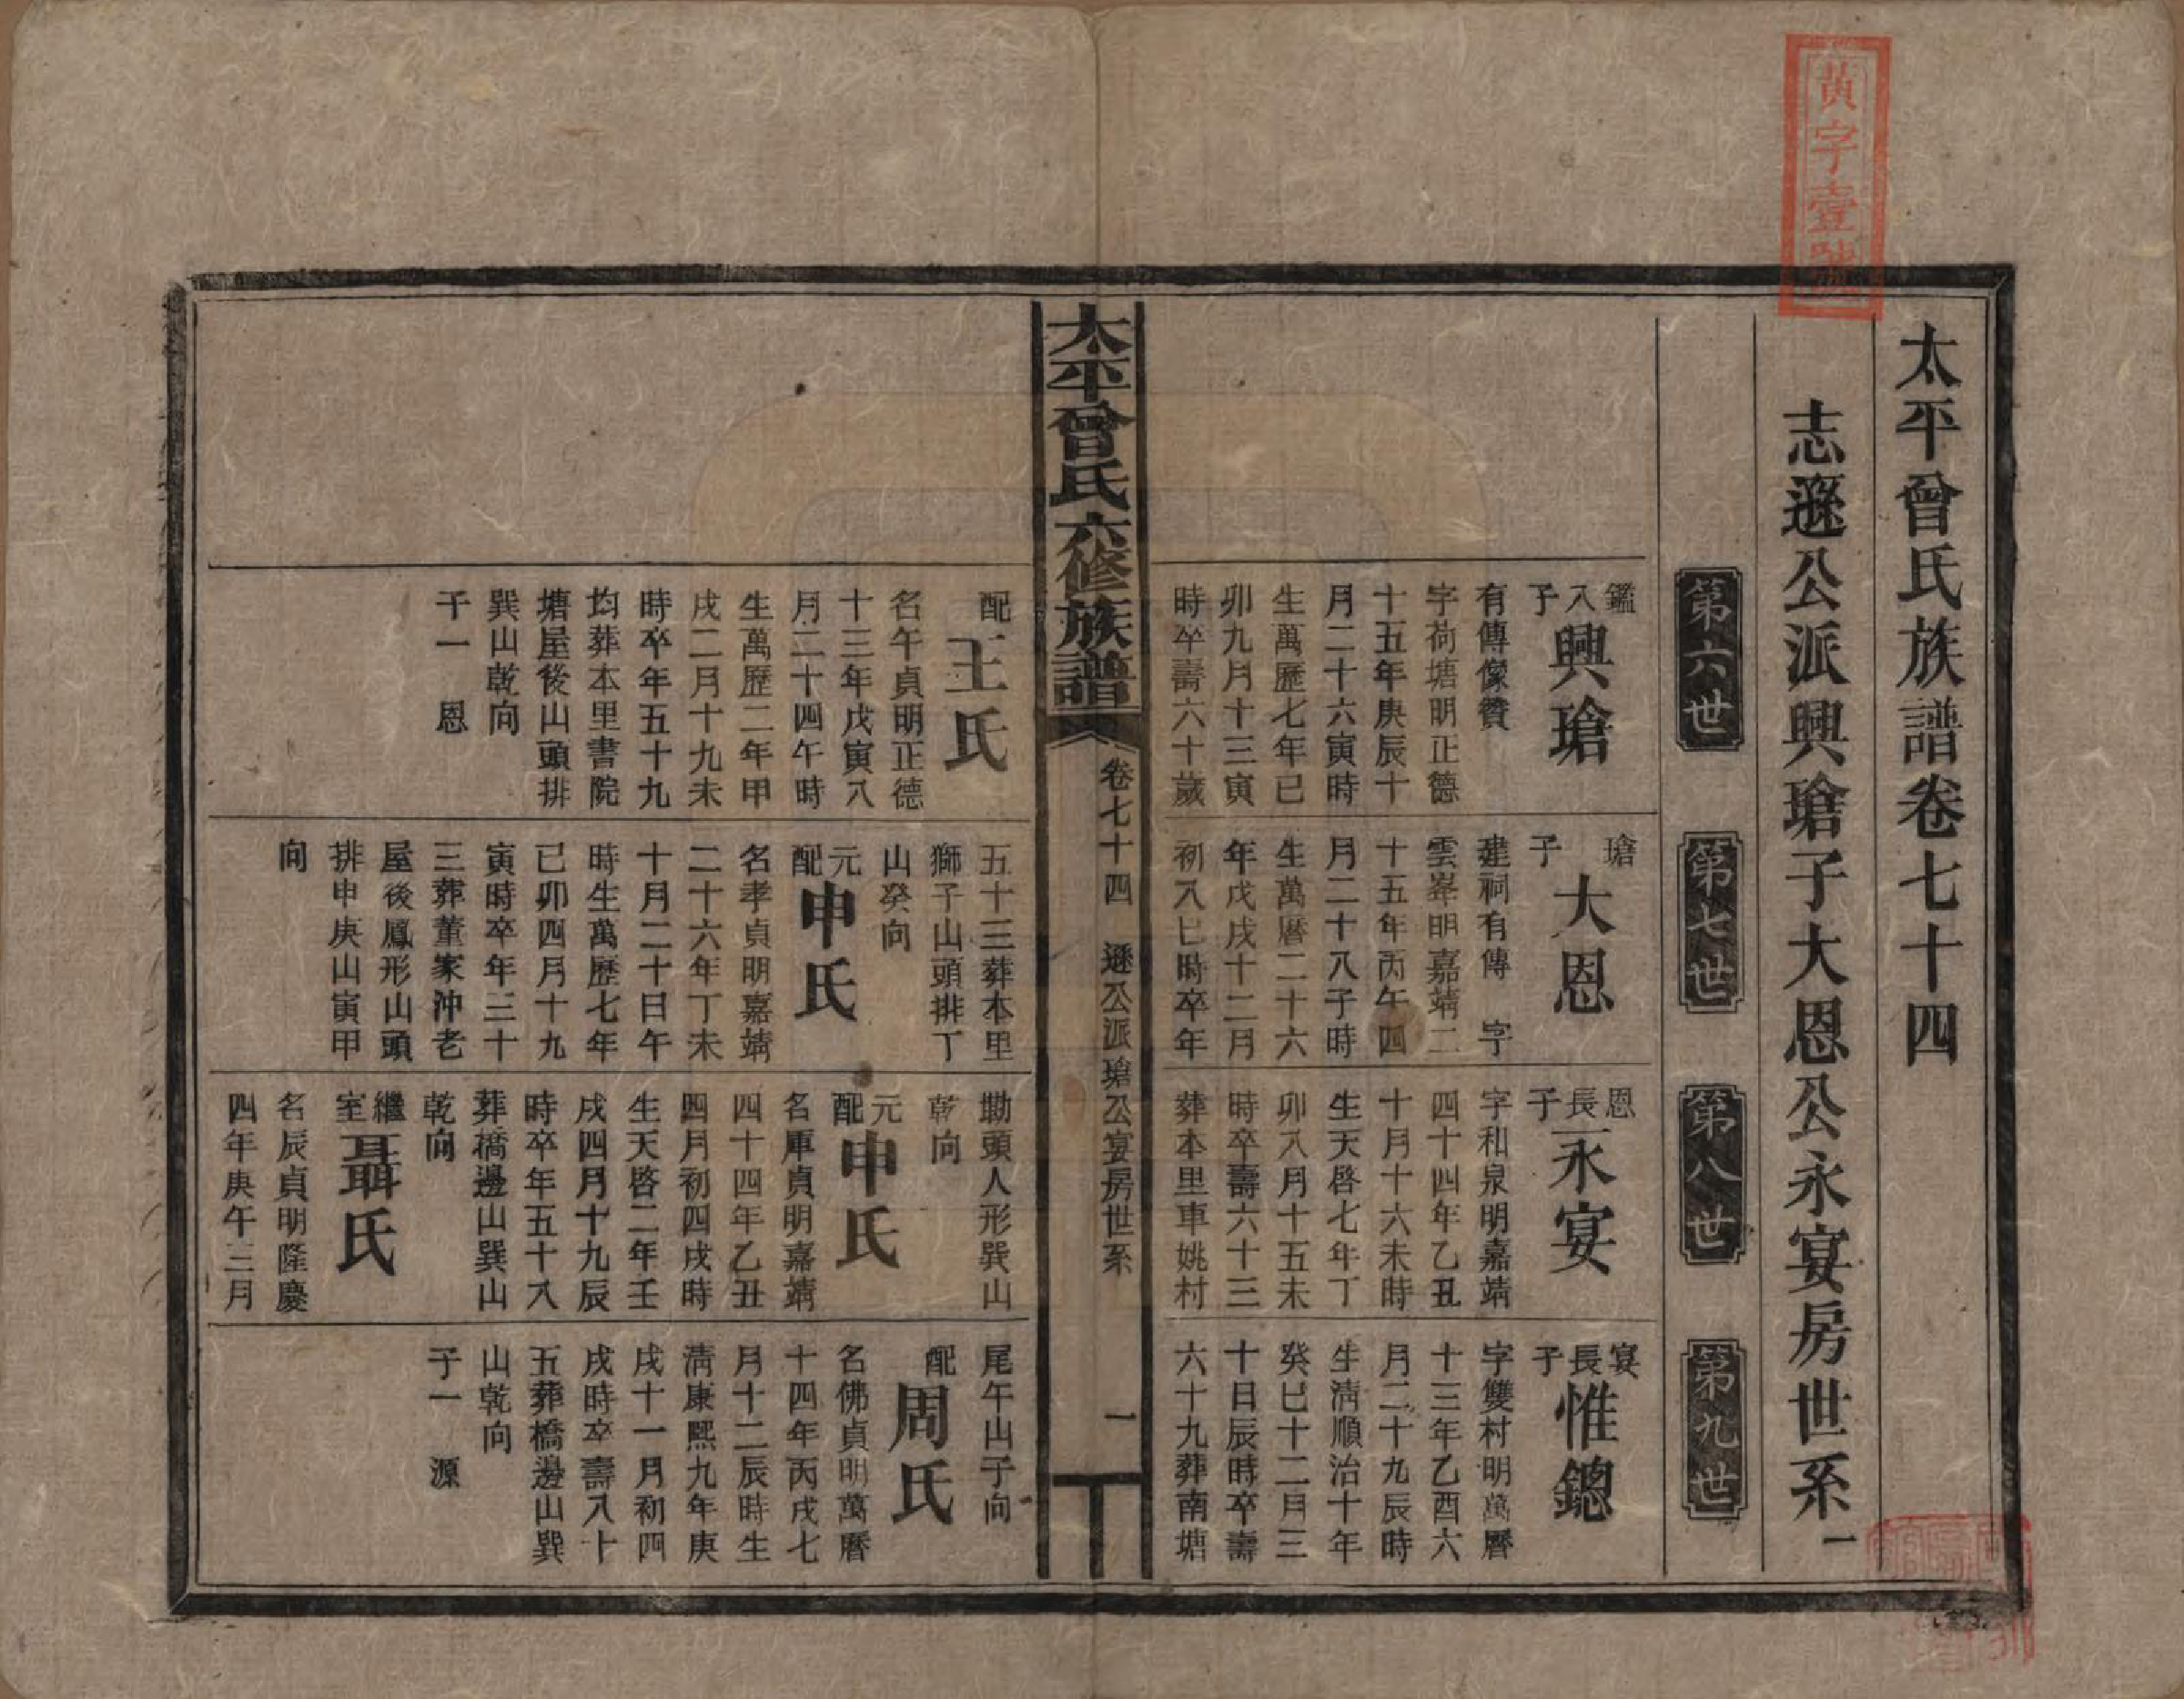 黄字壹號
太平曾氏族譜卷七十四
志遜公派興瑲子大恩公永宴房世系一
第六世
第七世
第八世
第九世
鑑入子
興瑲
有傳像贊
字荷塘明正德
十五年庚辰十
月二十六寅時
生萬歷七年已
卯九月十三寅
時卒壽六十歲
瑲子
大恩
建祠有傳 字
雲峯明嘉靖二
十五年丙午四
月二十八子時
生萬曆二十六
年戊戌十二月
初八巳時卒年
恩長子
永宴
字和泉明嘉靖
四十四年乙丑
十月十六未時
生天啓七年丁
卯八月十五未
時卒壽六十三
葬本里車姚村
宴長子
惟鏓
字雙村明萬曆
十三年乙酉六
月二十九辰時
生淸順治十年
癸巳十二月三
十日辰時卒壽
六十九葬南塘
太平曾氏六修族譜
卷七十四 遜公派瑲公宴房世系
一
配
王氏
名午貞明正德
十三年戊寅八
月二十四午時
生萬歷二年甲
戌二月十九未
時卒年五十九
均葬本里書院
塘屋後山頭排
巽山乾向
子一 恩
五十三葬本里
獅子山頭排丁
山癸向
元配
申氏
名孝貞明嘉靖
二十六年丁未
十月二十日午
時生萬歷七年
已卯四月十九
寅時卒年三十
三葬董家沖老
屋後鳳形山頭
排申庚山寅甲
向
塘頭人形巽山
乾向
元配
申氏
名庫貞明嘉靖
四十四年乙丑
四月初四戌時
生天啓二年壬
戌四月十九辰
時卒年五十八
葬橋邊山巽山
乾向
繼室
聶氏
名辰貞明隆慶
四年庚午三月
尾午山子向
配
周氏
名佛貞明萬曆
十四年丙戌七
月十二辰時生
淸康熙九年庚
戌十一月初四
戌時卒壽八十
五葬橋邊山巽
山乾向
子一 源